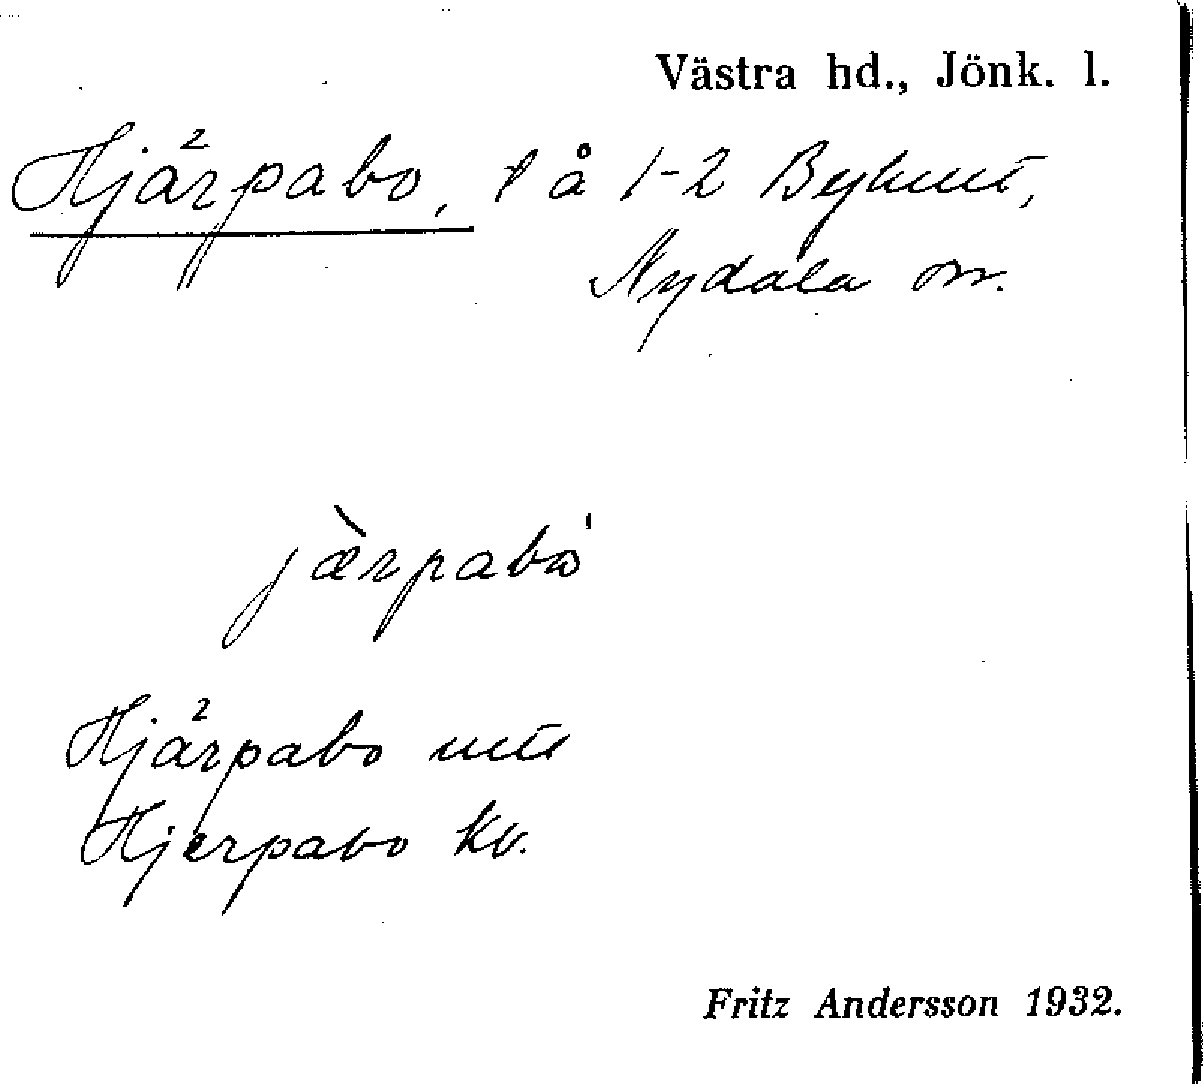 Västra hd., Jönk. l.
Hjärpabo, l å 1-2 Byhult,
Nydala sn.
jàrpabo
Hjärpabo utt
Hjerpabo kv.
Fritz Andersson 1932.